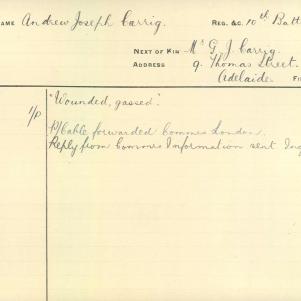 NAME Andrew Joseph Carrig. REG. &c. 10th Batt
NEXT OF KIN Mr G. J. Carrig.
ADDRESS 9. Thomas Street.
Adelaide.
"Wounded, gassed".
P/Cable forwarded Commes London.
Reply from Commes Information sent Inq